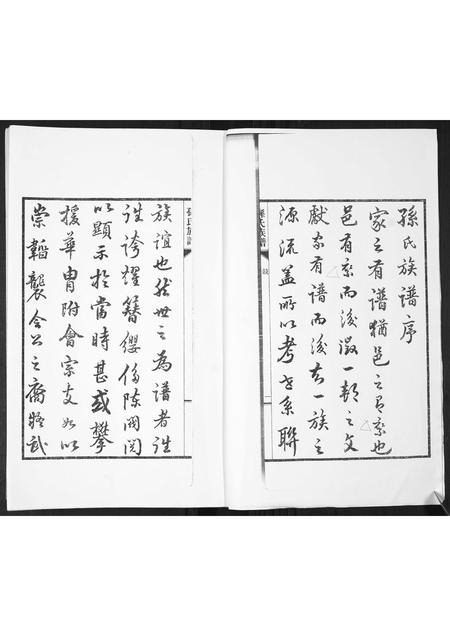 孫氏族譜序
家之有譜猶邑之有乘也
邑有乘而後徵一郡之文
獻家有譜而後知一族之
源流蓋所以考世系聯
孫氏族譜
族誼也然世之為譜者往
往誇耀簪纓侈陳閥閱
以顯示於當時甚或攀
援華胄附會宗支如以
崇韜襲令公之裔